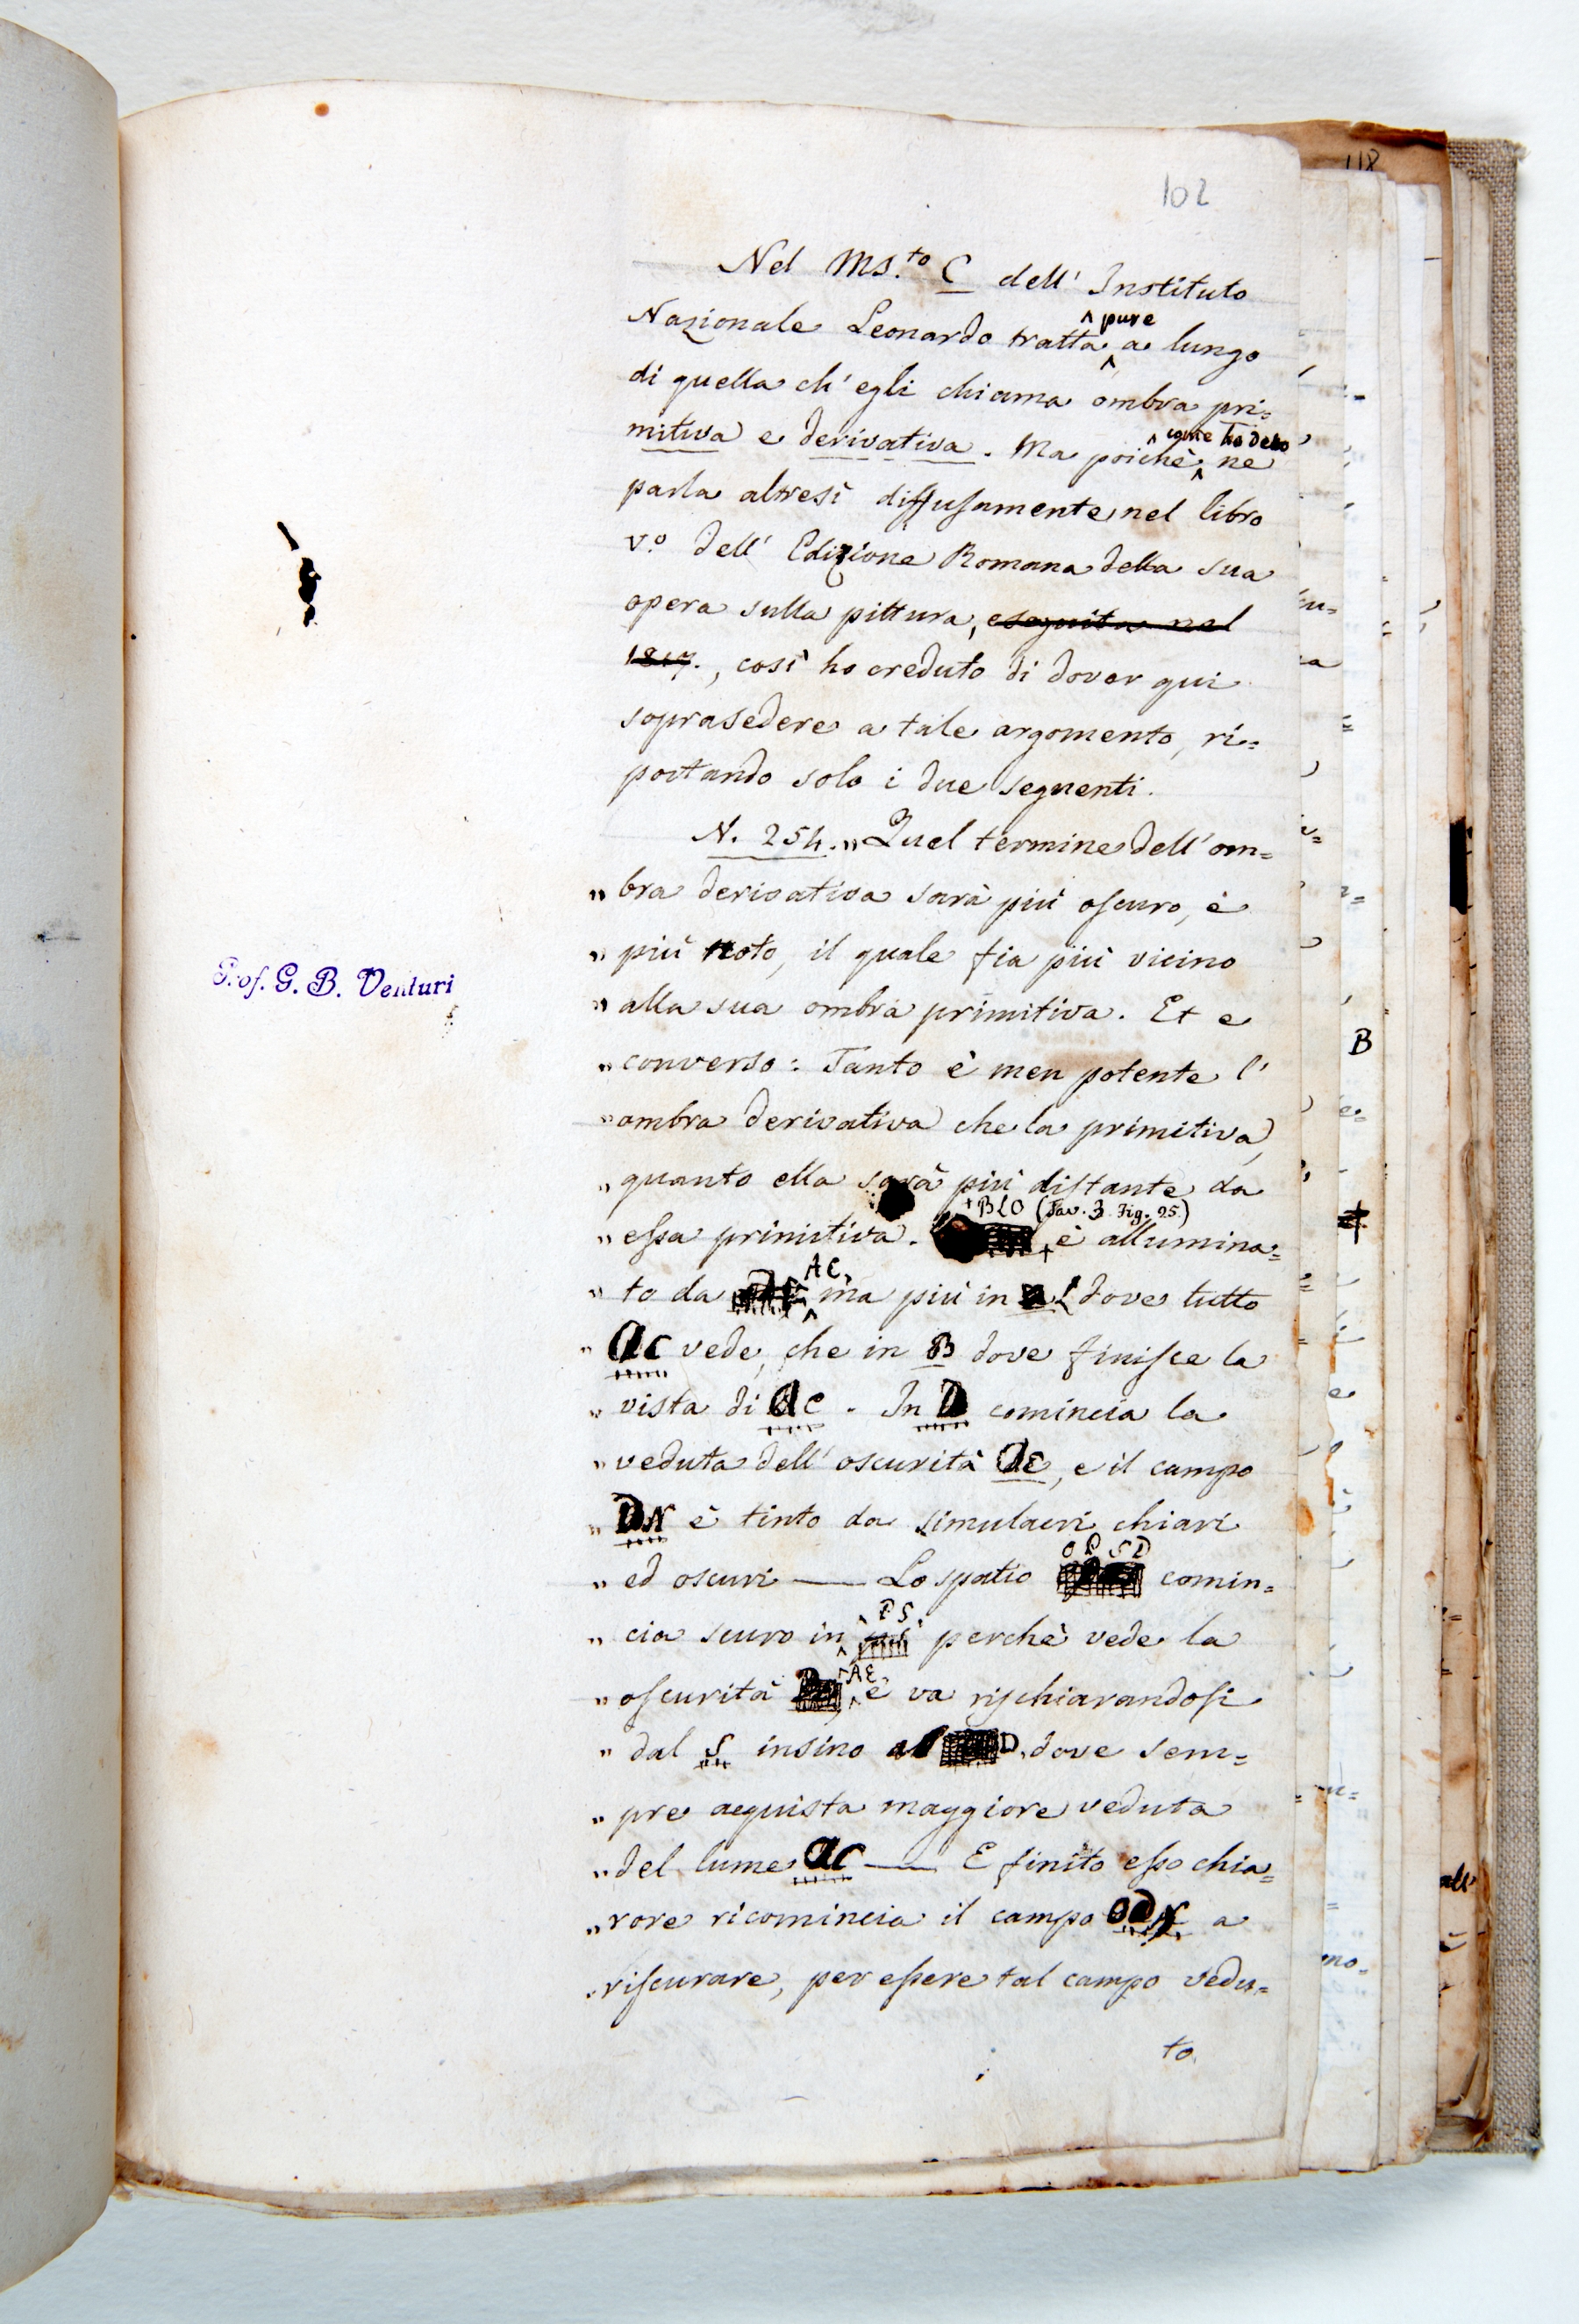 118
102
Nel Ms.to C dell' Instituto
Nazionale Leonardo tratta pure a lungo
di quella ch' egli chiama ombra pri=
mitiva e derivativa. Ma poichè come ho detto ne
parla altresì diffusamente nel libro
V.o dell' Edizione Romana della sua
opera sulla pittura, eseguita nel
1817., così ho creduto di dover qui
soprasedere a tale argomento, ri=
portando solo i due seguenti.
N. 254. „ Quel termine dell' om=
„ bra derivativa sarà più oscuro, e
„ più noto, il quale fia più vicino
„ alla sua ombra primitiva. Et e
„ converso: Tanto è men potente l'
„ ombra derivativa che la primitiva,
„ quanto ella sarà più distante da
„ essa primitiva. + BLO (Tav. 3. Fig. 25.) è allumina=
„ to da AC, ma più in L dove tutto
„ AC vede, che in B dove finisce la
„ vista di AC. In D comincia la
„ veduta dell' oscurità AE, e il campo
„ DN è tinto da simulacri chiari
„ ed oscuri — Lo spatio OPSD comin=
„ cia scuro in PS, perchè vede la
„ oscurità AE, e va rischiarandosi
„ dal S insino al D, dove sem=
„ pre acquista maggiore veduta
„ del lume AC — E finito esso chia=
„ rore ricomincia il campo ODN a
„ riscurare, per essere tal campo vedu=
to.
Prof. G. B. Venturi
B